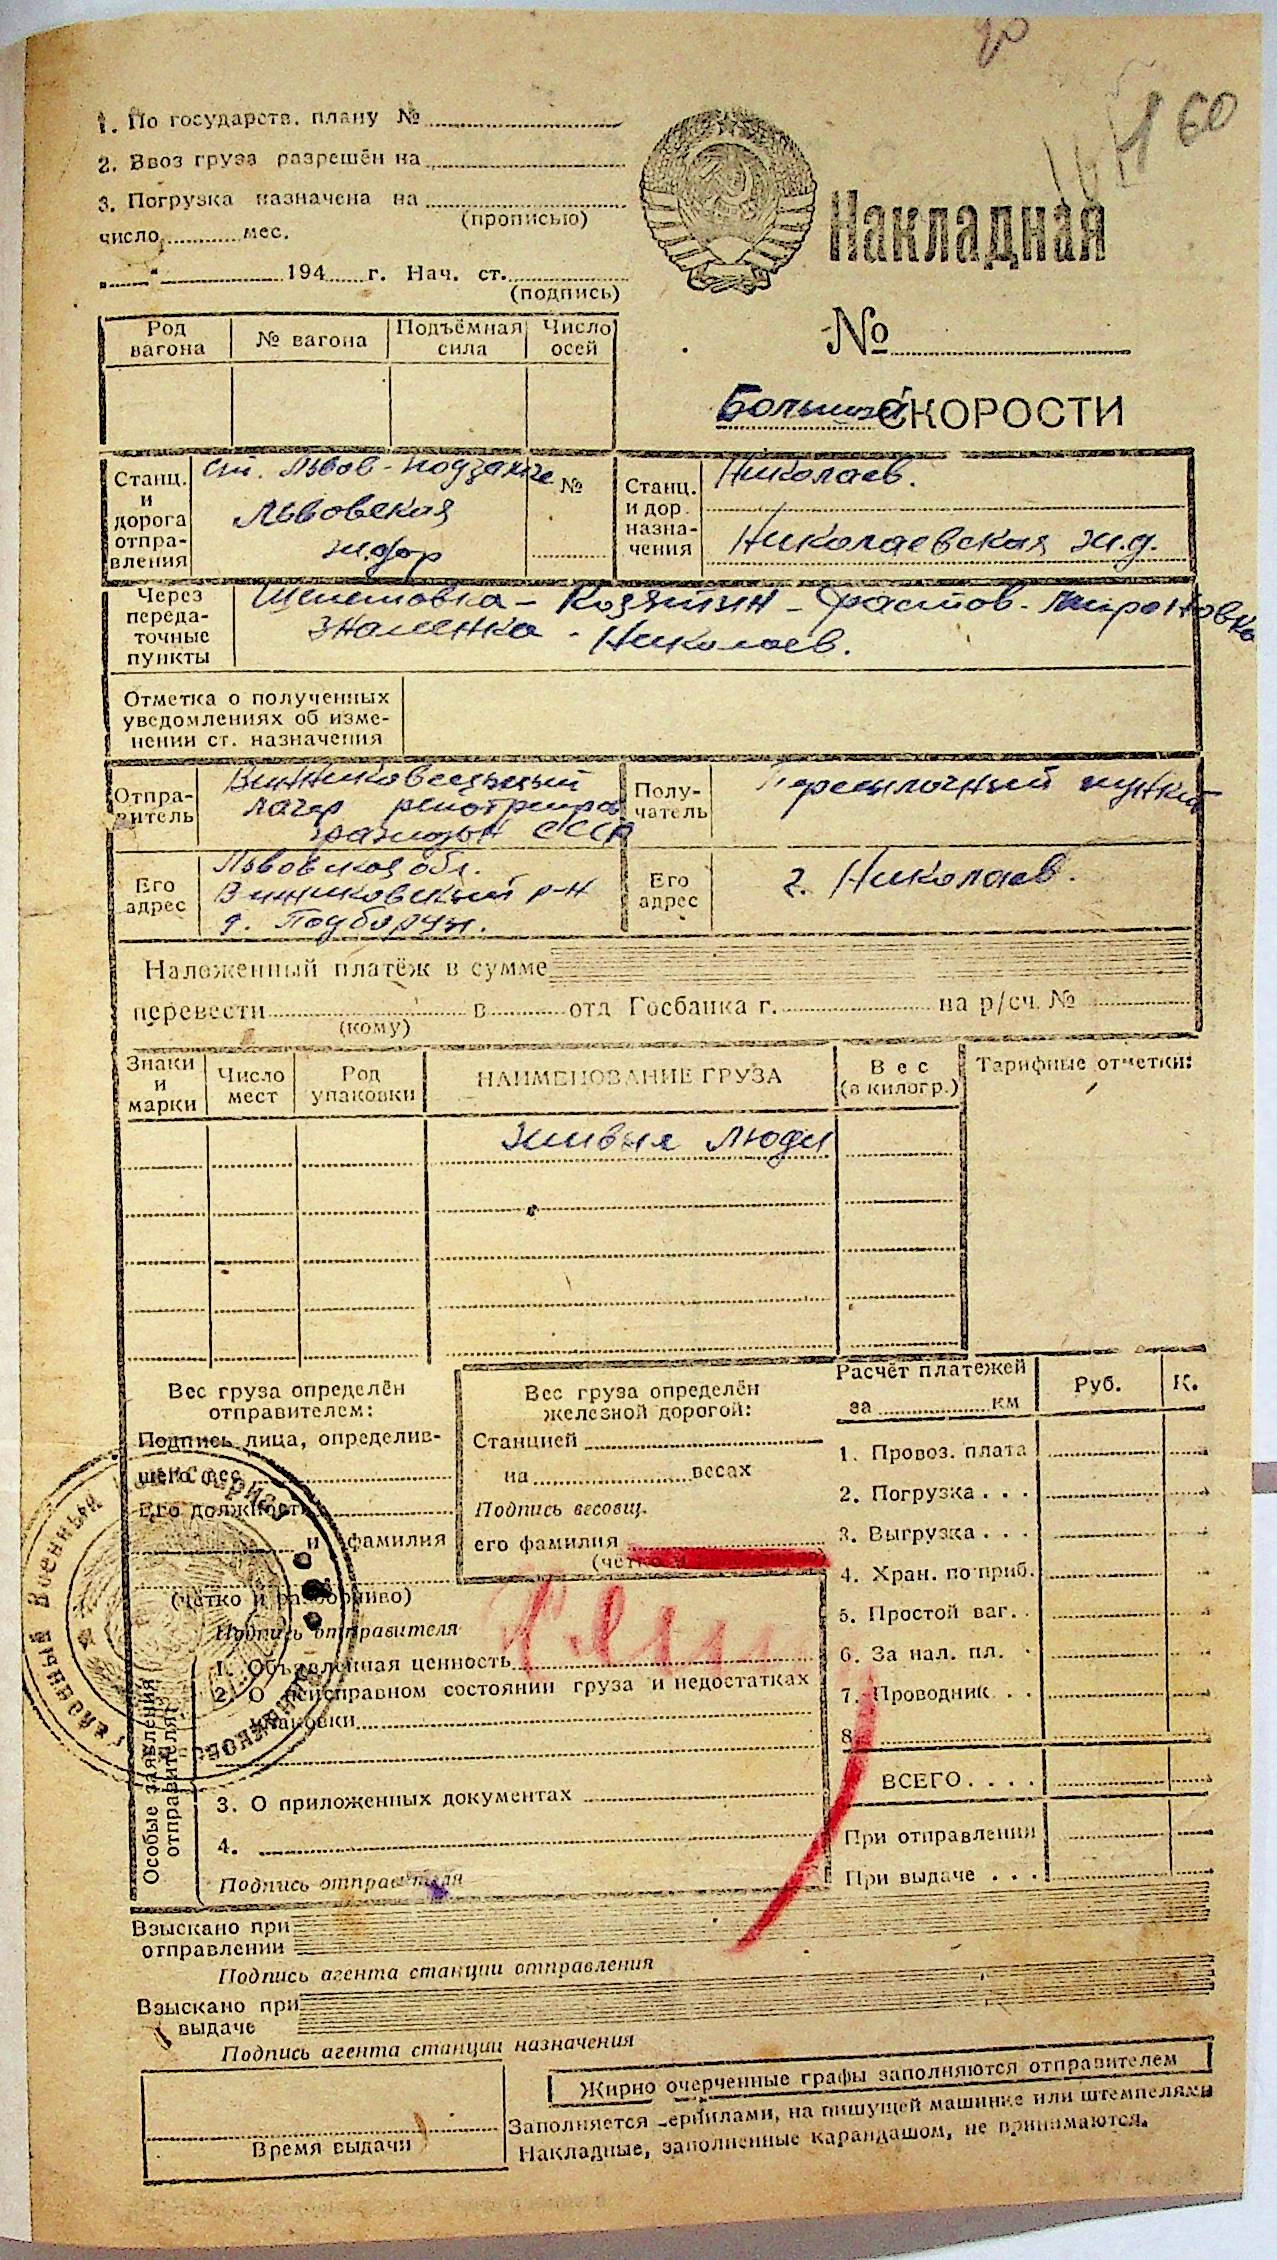 20
160
1. По государств. плану №
2. Ввоз груза разрешён на
3. Погрузка назначена на
(прописью)
число мес.
" " 194 г. Нач. ст.
(подпись)
Накладная
№
Большой СКОРОСТИ
Род вагона
№ вагона
Подъёмная сила
Число осей
Станц. и дорога отправления
ст. Львов-подзамче
Львовская
ж.дор
№
Станц. и дор. назначения
Николаев.
Николаевская ж.д.
Через передаточные пункты
Шепетовка - Козятин - Фастов - Мироновка
Знаменка - Николаев.
Отметка о полученных
уведомлениях об изме-
нении ст. назначения
Отпра-
витель
Винниковский
лагер репатриира
граждан СССР
Полу-
чатель
Пересылочный пункт
Его
адрес
Львовская обл.
Винниковский р-н
д. Подборцы.
Его
адрес
г. Николаев.
Наложенный платёж в сумме
перевести в отд Госбанка г. на р/сч. №
(кому)
Знаки и марки
Число мест
Род упаковки
НАИМЕНОВАНИЕ ГРУЗА
Вес (в килогр.)
Тарифные отметки:
Живые люди
Вес груза определён
отправителем:
Подпись лица, определив-
шего вес
Его должность
и фамилия
(четко и разборчиво)
Подпись отправителя
Вес груза определён
железной дорогой:
Станцией
на весах
Подпись весовщ.
его фамилия
Расчёт платежей
за км
Руб.
К.
1. Провоз. плата
2. Погрузка . . .
3. Выгрузка . . .
4. Хран. по приб.
5. Простой ваг. .
6. За нал. пл. .
7. Проводник . .
8.
ВСЕГО . . . .
При отправлении
При выдаче . . .
Особые заявления
отправителя:
1. Объявленная ценность
2. О неисправном состоянии груза и недостатках
упаковки
3. О приложенных документах
4.
Подпись отправителя
Взыскано при
отправлении
Подпись агента станции отправления
Взыскано при
выдаче
Подпись агента станции назначения
Время выдачи
Жирно очерченные графы заполняются отправителем
Заполняется чернилами, на пишущей машинке или штемпелями
Накладные, заполненные карандашом, не принимаются.